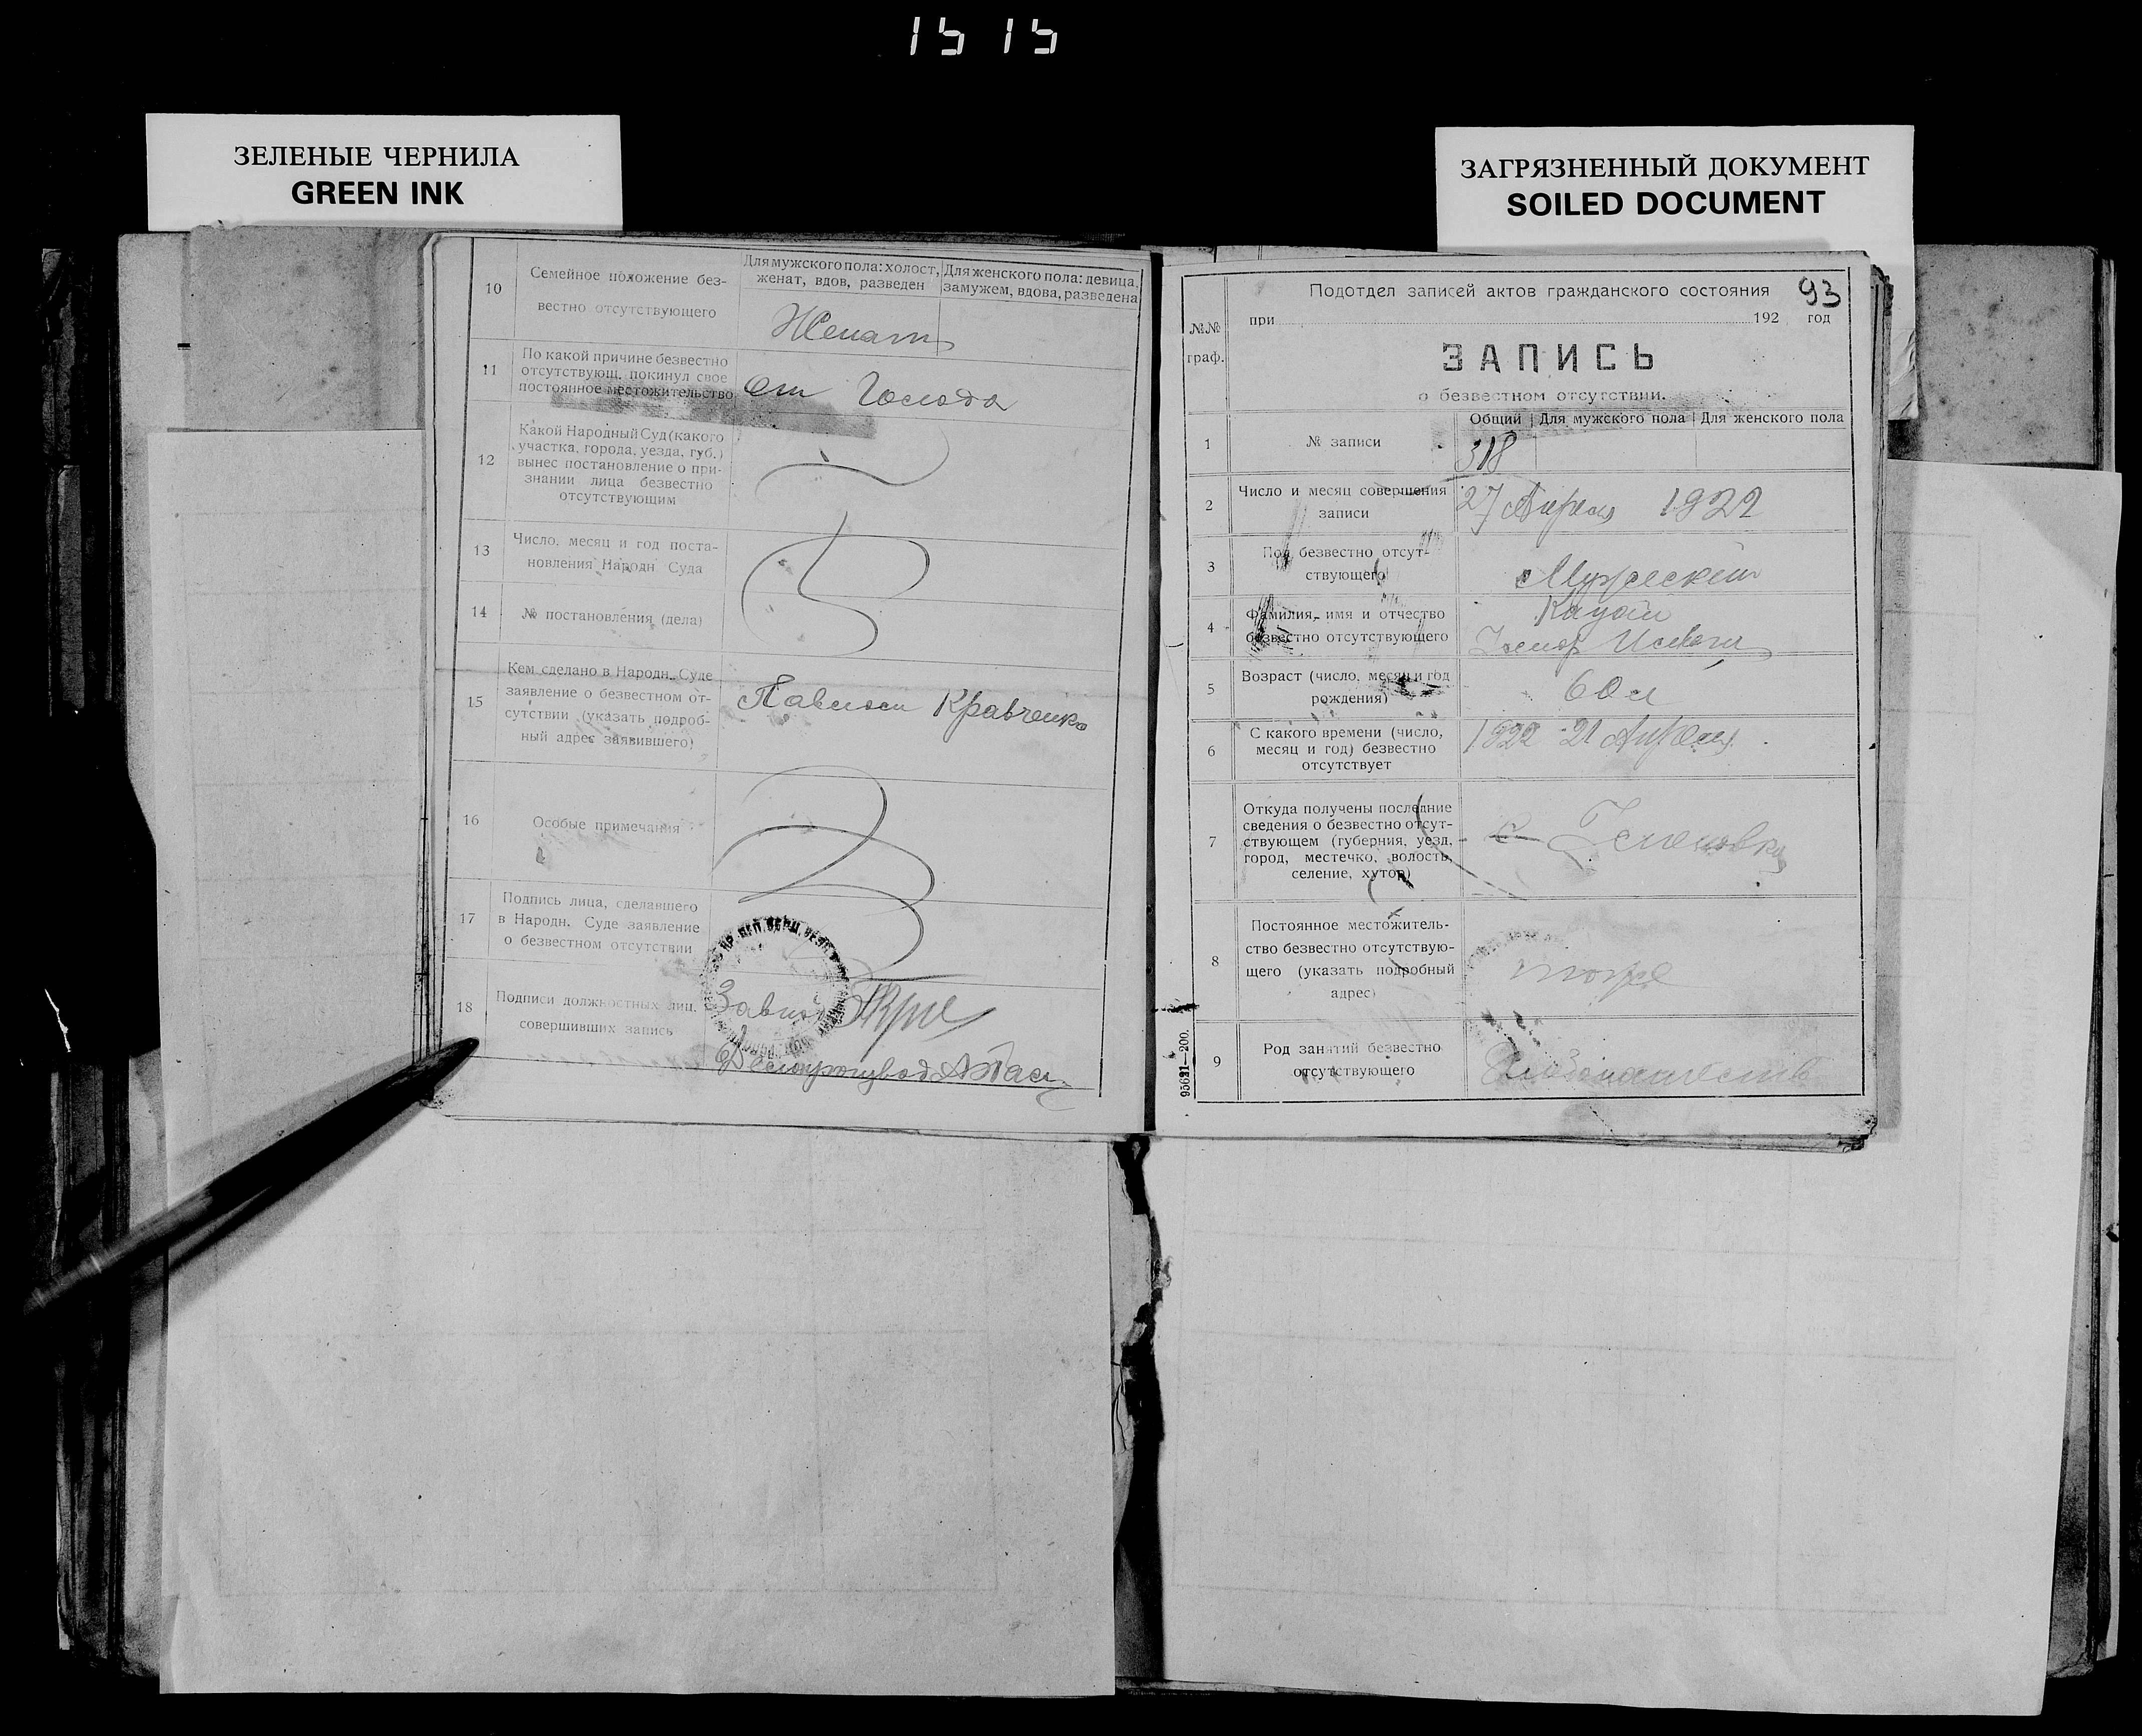 1515
ЗЕЛЕНЫЕ ЧЕРНИЛА
GREEN INK
ЗАГРЯЗНЕННЫЙ ДОКУМЕНТ
SOILED DOCUMENT
10
Семейное положение без-
вестно отсутствующего
Для мужского пола: холост,
женат, вдов, разведен
Для женского пола: девица,
замужем, вдова, разведена
Женат
11
По какой причине безвестно
отсутствующ. покинул свое
постоянное местожительство
От Голода
12
Какой Народный Суд (какого
участка, города, уезда, губ.)
вынес постановление о при-
знании лица безвестно
отсутствующим
13
Число, месяц и год поста-
новления Народн. Суда
14
№ постановления (дела)
15
Кем сделано в Народн. Суде
заявление о безвестном от-
сутствии (указать подроб-
ный адрес заявившего)
Павлом Кравченко
16
Особые примечания
17
Подпись лица, сделавшего
в Народн. Суде заявление
о безвестном отсутствии
18
Подписи должностных лиц,
совершивших запись
Делопроизвод
93
№№
граф.
Подотдел записей актов гражданского состояния
при 192 год
ЗАПИСЬ
о безвестном отсутствии.
1
№ записи
Общий Для мужского пола Для женского пола
318
2
Число и месяц совершения
записи
27 Апреля 1922
3
Пол безвестно отсут-
ствующего
Мужеский
4
Фамилия, имя и отчество
безвестно отсутствующего
5
Возраст (число, месяц и год
рождения)
60 л
6
С какого времени (число,
месяц и год) безвестно
отсутствует
1922 21 Апреля
7
Откуда получены последние
сведения о безвестно отсут-
ствующем (губерния, уезд,
город, местечко, волость,
селение, хутор)
8
Постоянное местожитель-
ство безвестно отсутствую-
щего (указать подробный
адрес)
тоже
9
Род занятий безвестно
отсутствующего
95621—200.